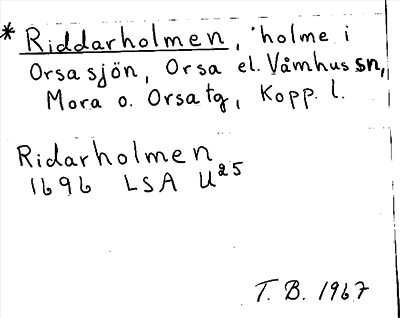 * Riddarholmen, 'holme i
Orsasjön, Orsa el. Våmhus sn,
Mora o. Orsa tg, Kopp. l.
Ridarholmen
1696 LSA U25
T. B. 1967